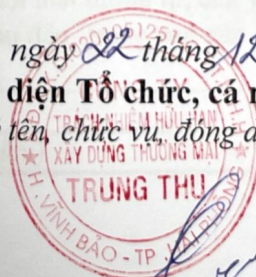 ngày 22 tháng 12
diện Tổ chức, cá
tên, chức vụ, đóng
CÔNG TY
TRÁCH NHIỆM HỮU HẠN
XÂY DỰNG THƯƠNG MẠI
TRUNG THU
H. VĨNH BẢO - TP. HẢI PHÒNG